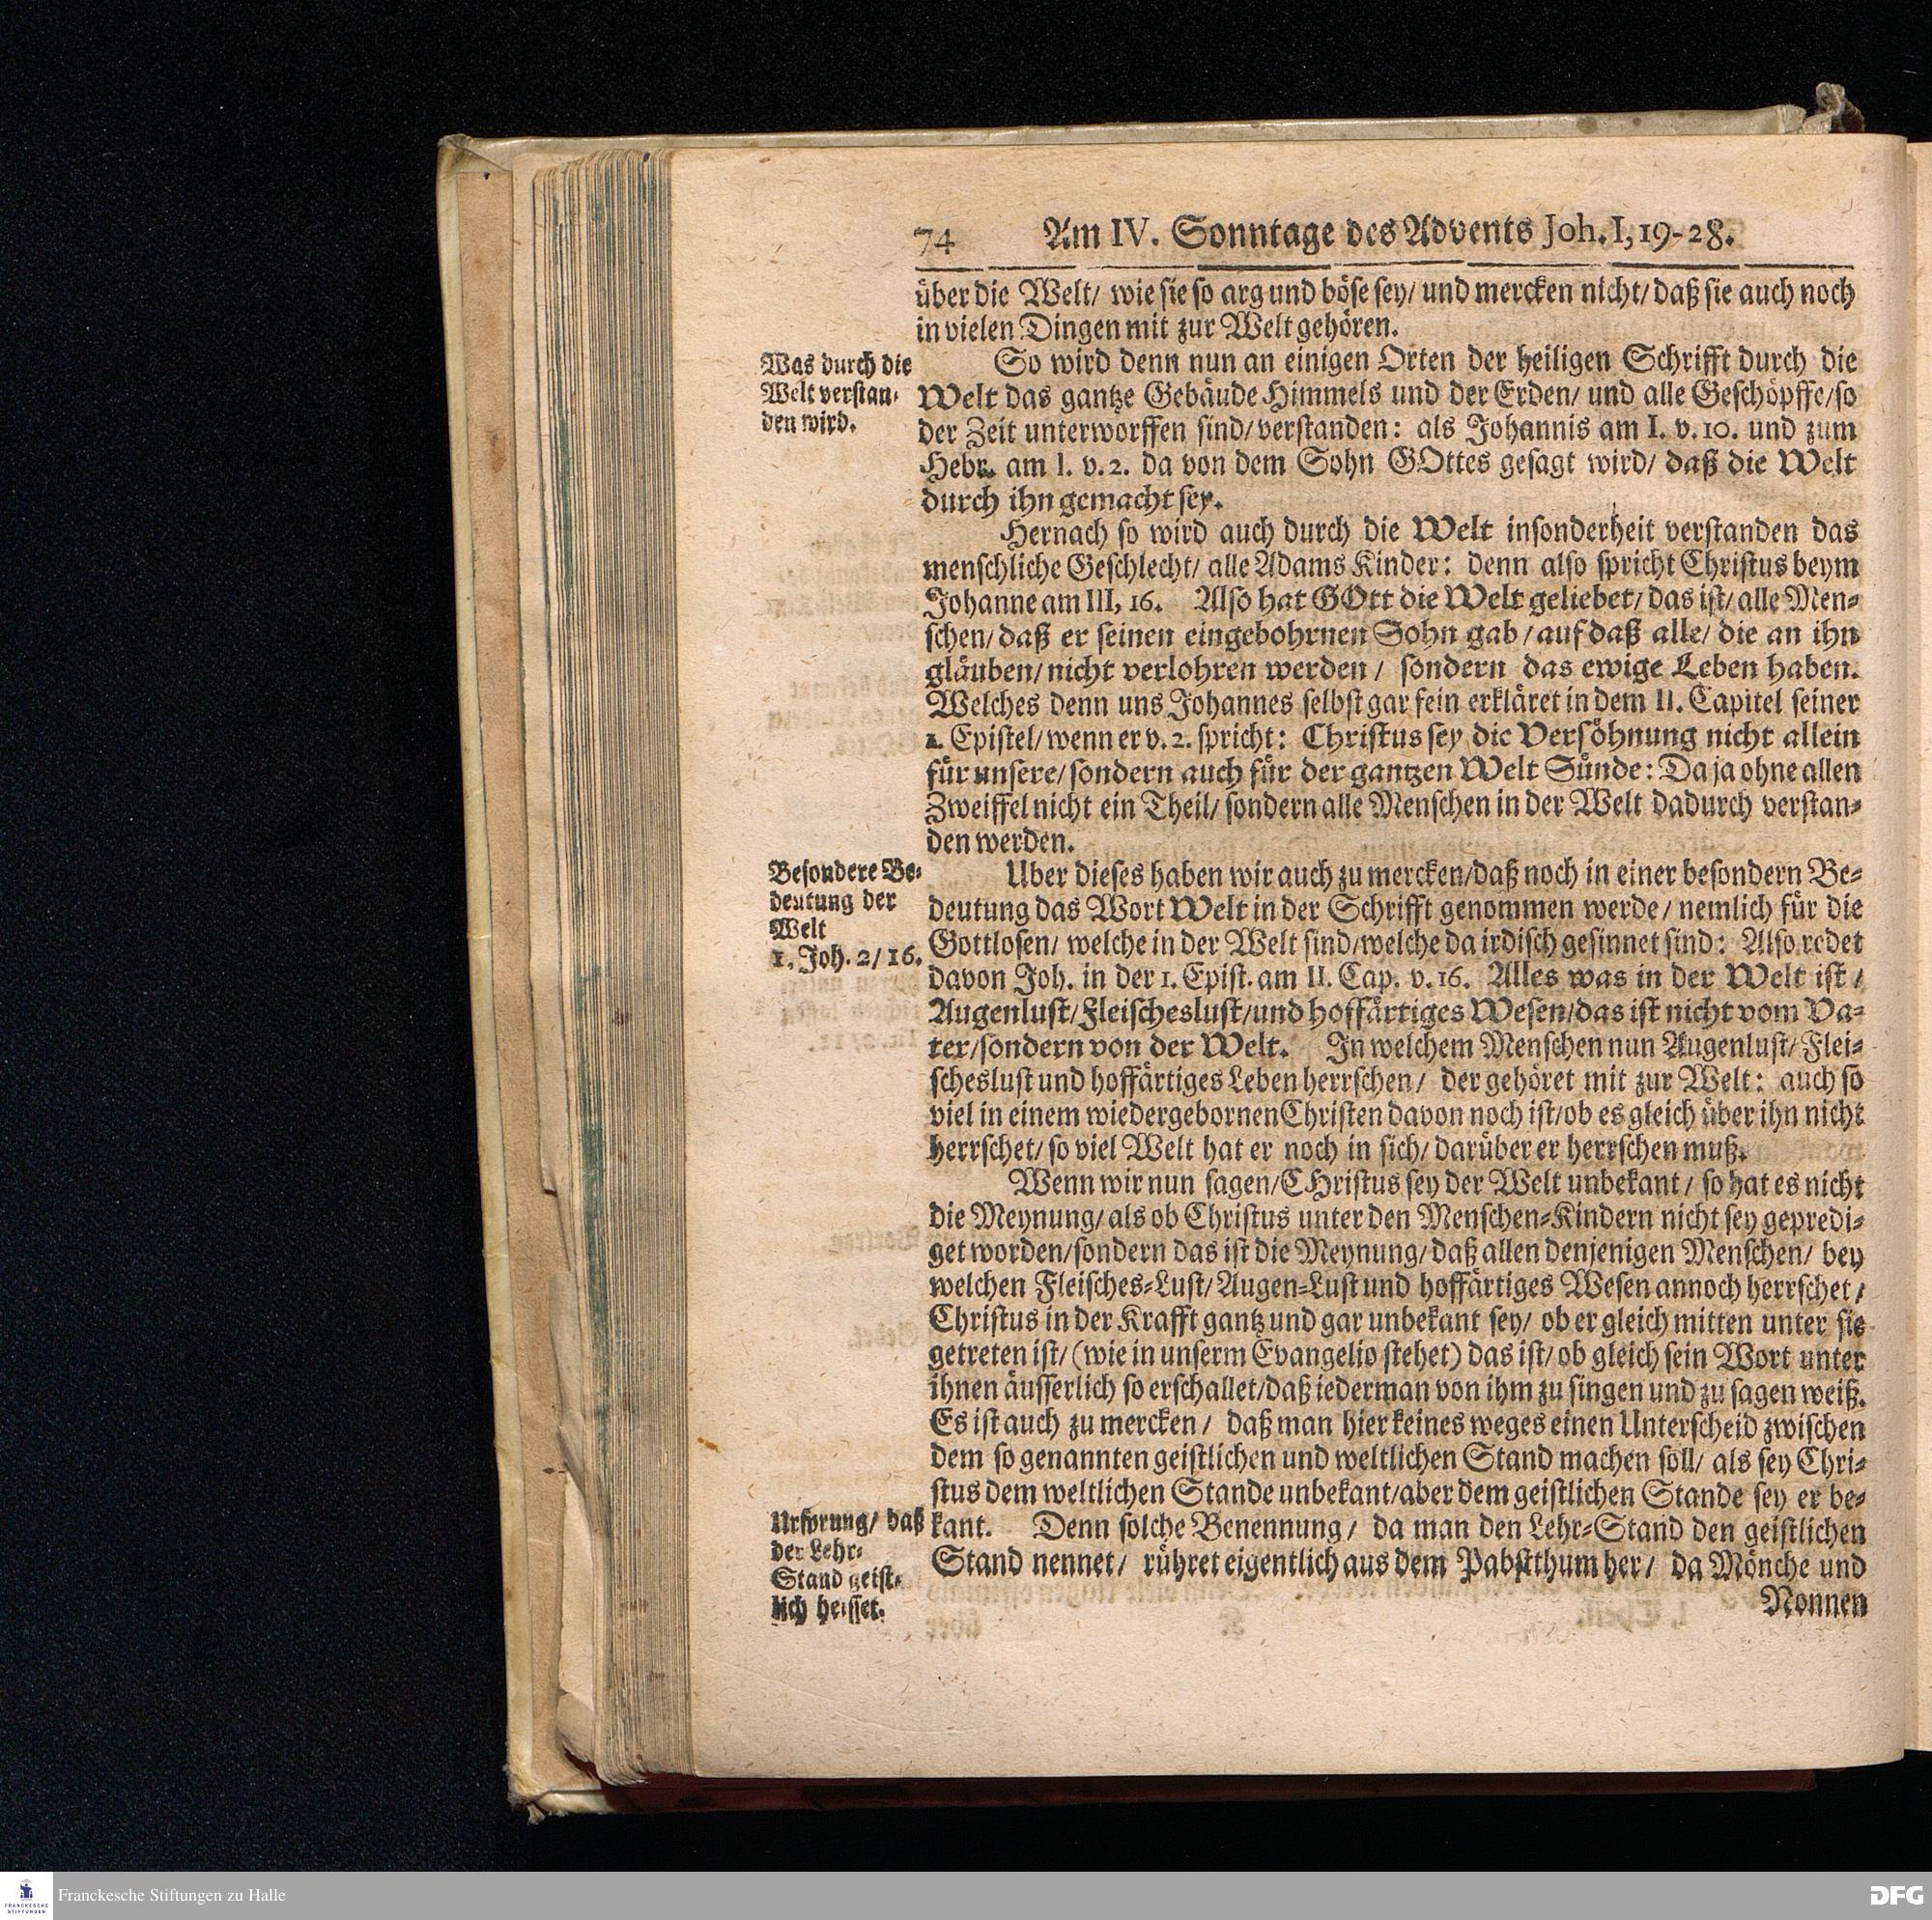 74 Am IV. Sonntage des Advents Joh. I, 19-28.
über die Welt/ wie sie so arg und böse sey/ und mercken nicht/ daß sie auch noch
in vielen Dingen mit zur Welt gehören.
Was durch die
Welt verstan-
den wird.
So wird denn nun an einigen Orten der heiligen Schrifft durch die
Welt das gantze Gebäude Himmels und der Erden/ und alle Geschöpffe/ so
der Zeit unterworffen sind/ verstanden: als Johannis am I. v. 10. und zum
Hebr. am I. v. 2. da von dem Sohn GOttes gesagt wird/ daß die Welt
durch ihn gemacht sey.
Hernach so wird auch durch die Welt insonderheit verstanden das
menschliche Geschlecht/ alle Adams Kinder: denn also spricht Christus beym
Johanne am III, 16. Also hat GOtt die Welt geliebet/ das ist/ alle Men-
schen/ daß er seinen eingebohrnen Sohn gab / auf daß alle/ die an ihn
gläuben/ nicht verlohren werden / sondern das ewige Leben haben.
Welches denn uns Johannes selbst gar fein erkläret in dem II. Capitel seiner
1. Epistel/ wenn er v. 2. spricht: Christus sey die Versöhnung nicht allein
für unsere/ sondern auch für der gantzen Welt Sünde: Da ja ohne allen
Zweiffel nicht ein Theil/ sondern alle Menschen in der Welt dadurch verstan-
den werden.
Besondere Be-
deutung der
Welt
1. Joh. 2/ 16.
Uber dieses haben wir auch zu mercken/ daß noch in einer besondern Be-
deutung das Wort Welt in der Schrifft genommen werde/ nemlich für die
Gottlosen/ welche in der Welt sind/ welche da irdisch gesinnet sind: Also redet
davon Joh. in der 1. Epist. am II. Cap. v. 16. Alles was in der Welt ist /
Augenlust/ Fleischeslust/ und hoffärtiges Wesen/ das ist nicht vom Va-
ter/ sondern von der Welt. In welchem Menschen nun Augenlust/ Flei-
scheslust und hoffärtiges Leben herrschen / der gehöret mit zur Welt: auch so
viel in einem wiedergebornen Christen davon noch ist/ ob es gleich über ihn nicht
herrschet/ so viel Welt hat er noch in sich/ darüber er herrschen muß.
Wenn wir nun sagen/ CHristus sey der Welt unbekant / so hat es nicht
die Meynung/ als ob Christus unter den Menschen-Kindern nicht sey gepredi-
get worden/ sondern das ist die Meynung/ daß allen denjenigen Menschen/ bey
welchen Fleisches-Lust/ Augen-Lust und hoffärtiges Wesen annoch herrschet /
Christus in der Krafft gantz und gar unbekant sey/ ob er gleich mitten unter sie
getreten ist/ (wie in unserm Evangelio stehet) das ist/ ob gleich sein Wort unter
ihnen äusserlich so erschallet/ daß iederman von ihm zu singen und zu sagen weiß.
Es ist auch zu mercken / daß man hier keines weges einen Unterscheid zwischen
dem so genannten geistlichen und weltlichen Stand machen soll/ als sey Chri-
stus dem weltlichen Stande unbekant/ aber dem geistlichen Stande sey er be-
kant. Denn solche Benennung / da man den Lehr-Stand den geistlichen
Stand nennet / rühret eigentlich aus dem Pabstthum her / da Mönche und
Ursprung/ daß
der Lehr-
Stand geist-
lich heisset.
Nonnen
Franckesche Stiftungen zu Halle
FRANCKESCHE
STIFTUNGEN
DFG